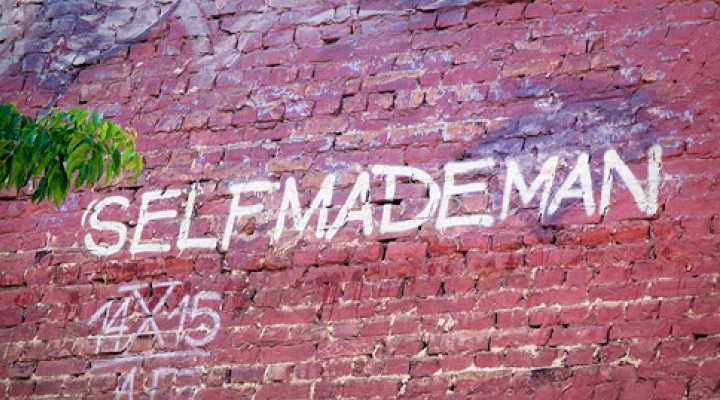 SELFMADEMAN
14 15